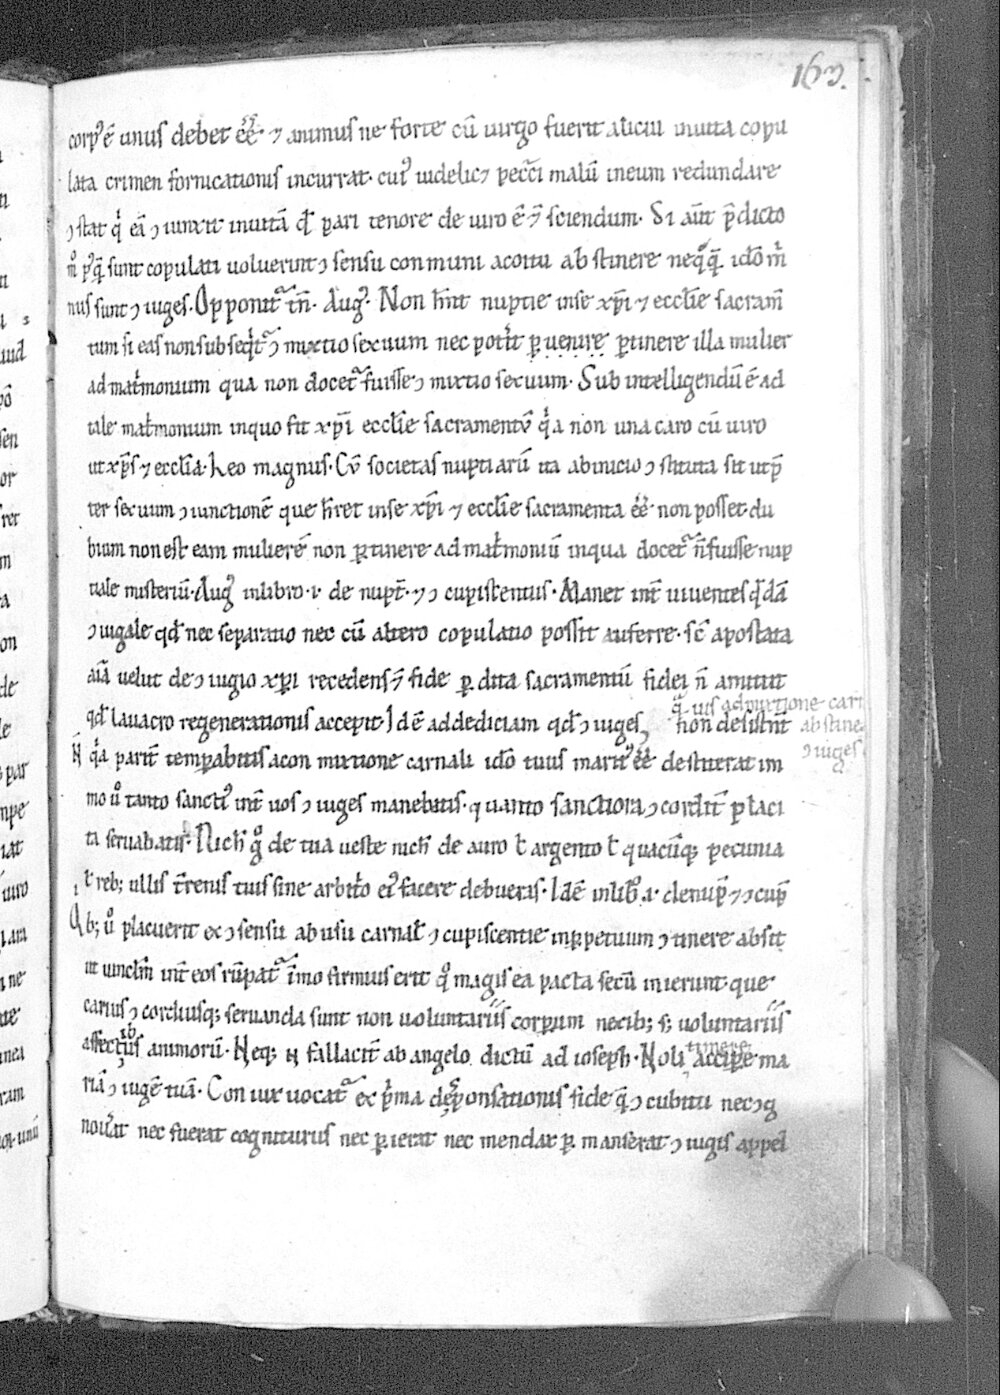 163.
corp᷒ ē unus debet e͞e ⁊ animus ne forte cū uirgo fuerit alicui inuita copu
lata crimen fornicationis incurrat. cui᷒ uidelicꝫ pecc̄i malū ineum redundare
ↄstat qͥ eā ↄiunxit inuitā qđ pari tenore de uiro ē ⁊ sciendum. Si aūt p̄dicto
mͦ pꝰqͣ sunt copulati uoluerint ↄsensu conmuni acoitu abstinere neqͦqͣ idō mͥ
nus sunt ↄiuges. Opponit᷑ tn̄. Aug᷒. Non h̄nt nuptie inse xp̄i ⁊ eccl̄ie sacram̄
tum si eas non subseqͥt᷑ ↄmixtio sexuum nec potͥt ꝑuenire ꝑtinere illa mulier
ad matͥmonium qua non docet᷑ fuisse ↄmixtio sexuum. Sub intelligendū ē ad
tale matͥmonium inquo fit xp̄i eccl̄ie sacramentū qͥa non una caro cū uiro
ut xp̄s ⁊ eccl̄ia. Leo magnus. Cū societas nuptiarū ita abinicio ↄstituta sit ut p̄
ter sexuum ↄiunctionē que h̄ret inse xp̄i ⁊ eccl̄ie sacramenta e͞e non posset. du
bium non est eam mulierē non ꝑtinere ad matͥmoniū inqua docet᷑ n̄ fuisse nup
tiale misteriū. Aug᷒ inlibro .i. de nupt̄. ⁊ ↄcupiscentiis. Manet int̄ uiuentes qͥdā
ↄiugale qđ nec separatio nec cū altero copulatio possit auferre. sic̄ apostata
aīa uelut de ↄiugio xp̄i recedens ⁊ fide ꝑdita sacramentū fidei n̄ amittit
qͣ uis admixtione cari
qđ lauacro regenerationis accepit. Idē addediciam qđ ↄiuges non desistn̄t abstine
ↄiuges
N̄ qͥa parit̄ temꝑabitis acon mixtione carnali idō tuus marit᷒ e͞e destiterat im
mo ūͦ tanto sancti᷒ int̄ uos ↄiuges manebatis. quanto sanctiora ↄcordit̄ placi
ta seruabatis. Nich̄ gͦ de tua ueste nich̄ de auro ł argento ł quacūqꝫ pecunia
ł rebꝫ ullis t̄renis tuis sine arbitͥo ei᷒ facere debueras. Idē inlibͦ .i. denup̄ ⁊ ↄcup̄
Qbꝫ ūͦ placuerit ex ↄsensu ab usu carnał ↄcupiscentie inꝑpetuum ↄtinere absit
ut uincłm int̄ eos rūpat᷑ īmo firmius erit qͦ magis ea pacta secū inierunt que
carius ↄcordiusqꝫ seruanda sunt non uoluntariis corporum nexibꝫ sꝫ uoluntariis
affectibus animorū. Neqꝫ n̄ fallacit̄ ab angelo dictū ad ioseph. Noli timere accipere ma
riā ↄiugē tuā. Coniux uocat᷑ ex pͥma desponsationis fide qͣ ↄcubitu nec ↄg
nouͥat nec fuerat cogniturus nec ꝑierat nec mendax ꝑmanserat ↄiugis appeł